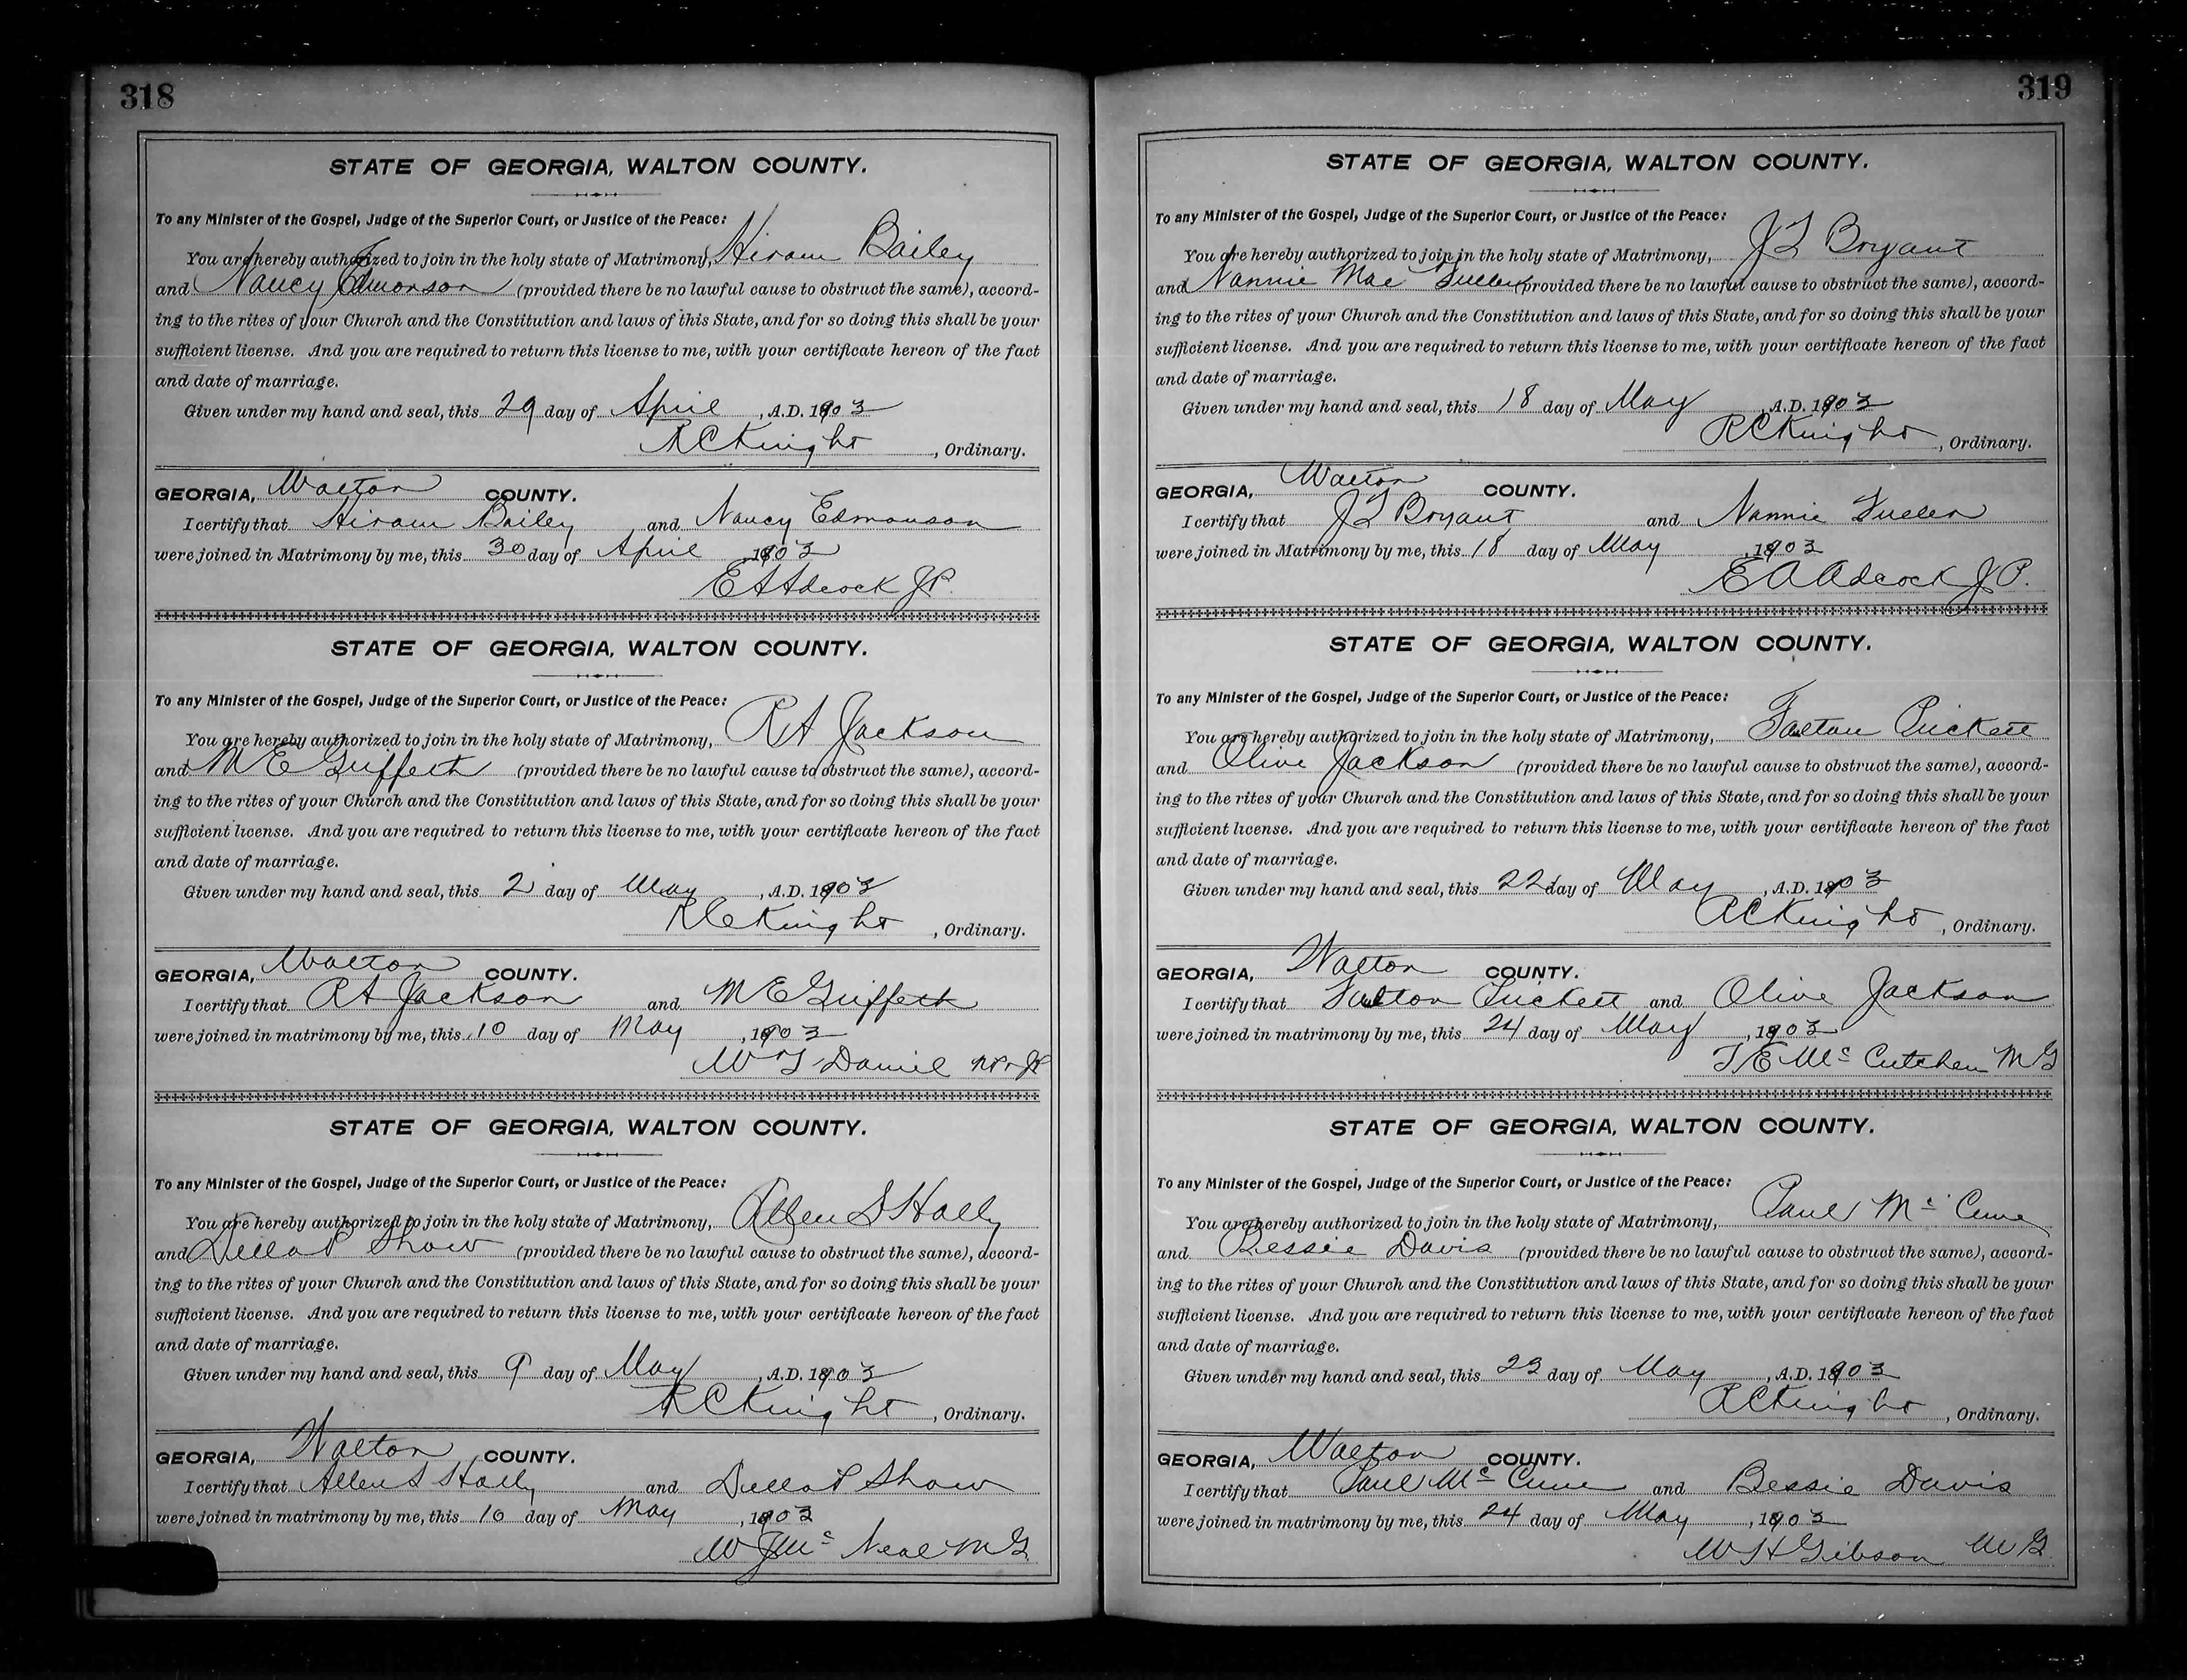 318
STATE OF GEORGIA, WALTON COUNTY.
To any Minister of the Gospel, Judge of the Superior Court, or Justice of the Peace:
You are hereby authorized to join in the holy state of Matrimony, Hiram Bailey
and Nancy Edmonson (provided there be no lawful cause to obstruct the same), accord-
ing to the rites of your Church and the Constitution and laws of this State, and for so doing this shall be your
sufficient license. And you are required to return this license to me, with your certificate hereon of the fact
and date of marriage.
Given under my hand and seal, this 29 day of April, A.D. 1903
R C Knight, Ordinary.
GEORGIA, Walton COUNTY.
I certify that Hiram Bailey and Nancy Edmonson
were joined in Matrimony by me, this 30 day of April 1903
E A Adcock J P.
STATE OF GEORGIA, WALTON COUNTY.
To any Minister of the Gospel, Judge of the Superior Court, or Justice of the Peace:
You are hereby authorized to join in the holy state of Matrimony, R A Jackson
and M E Griffeth (provided there be no lawful cause to obstruct the same), accord-
ing to the rites of your Church and the Constitution and laws of this State, and for so doing this shall be your
sufficient license. And you are required to return this license to me, with your certificate hereon of the fact
and date of marriage.
Given under my hand and seal, this 2 day of May, A.D. 1903
R C Knight, Ordinary.
GEORGIA, Walton COUNTY.
I certify that R A Jackson and M E Griffeth
were joined in matrimony by me, this 10 day of May, 1903
Daniel
STATE OF GEORGIA, WALTON COUNTY.
To any Minister of the Gospel, Judge of the Superior Court, or Justice of the Peace:
You are hereby authorized to join in the holy state of Matrimony, Allen S Hally
and Della P Shaw (provided there be no lawful cause to obstruct the same), accord-
ing to the rites of your Church and the Constitution and laws of this State, and for so doing this shall be your
sufficient license. And you are required to return this license to me, with your certificate hereon of the fact
and date of marriage.
Given under my hand and seal, this 9 day of May, A.D. 1903
R C Knight, Ordinary.
GEORGIA, Walton COUNTY.
I certify that Allen S Hally and Della P Shaw
were joined in matrimony by me, this 10 day of May, 1903
W J Mc Neal M G
319
STATE OF GEORGIA, WALTON COUNTY.
To any Minister of the Gospel, Judge of the Superior Court, or Justice of the Peace:
You are hereby authorized to join in the holy state of Matrimony, J T Bryant
and Nannie Mae Fuller (provided there be no lawful cause to obstruct the same), accord-
ing to the rites of your Church and the Constitution and laws of this State, and for so doing this shall be your
sufficient license. And you are required to return this license to me, with your certificate hereon of the fact
and date of marriage.
Given under my hand and seal, this 18 day of May, A.D. 1903
R C Knight, Ordinary.
GEORGIA, Walton COUNTY.
I certify that J T Bryant and Nannie Fuller
were joined in Matrimony by me, this 18 day of May, 1903
E A Adcock J P.
STATE OF GEORGIA, WALTON COUNTY.
To any Minister of the Gospel, Judge of the Superior Court, or Justice of the Peace:
You are hereby authorized to join in the holy state of Matrimony, Falton Puckett
and Olive Jackson (provided there be no lawful cause to obstruct the same), accord-
ing to the rites of your Church and the Constitution and laws of this State, and for so doing this shall be your
sufficient license. And you are required to return this license to me, with your certificate hereon of the fact
and date of marriage.
Given under my hand and seal, this 22 day of May, A.D. 1903
R C Knight, Ordinary.
GEORGIA, Walton COUNTY.
I certify that Fulton Puckett and Olive Jackson
were joined in matrimony by me, this 24 day of May, 1903
T E Mc Cutchen M G
STATE OF GEORGIA, WALTON COUNTY.
To any Minister of the Gospel, Judge of the Superior Court, or Justice of the Peace:
You are hereby authorized to join in the holy state of Matrimony, Paul Mc Cune
and Bessie Davis (provided there be no lawful cause to obstruct the same), accord-
ing to the rites of your Church and the Constitution and laws of this State, and for so doing this shall be your
sufficient license. And you are required to return this license to me, with your certificate hereon of the fact
and date of marriage.
Given under my hand and seal, this 23 day of May, A.D. 1903
R C Knight, Ordinary.
GEORGIA, Walton COUNTY.
I certify that Paul Mc Cune and Bessie Davis
were joined in matrimony by me, this 24 day of May, 1903
W H Gibson M G